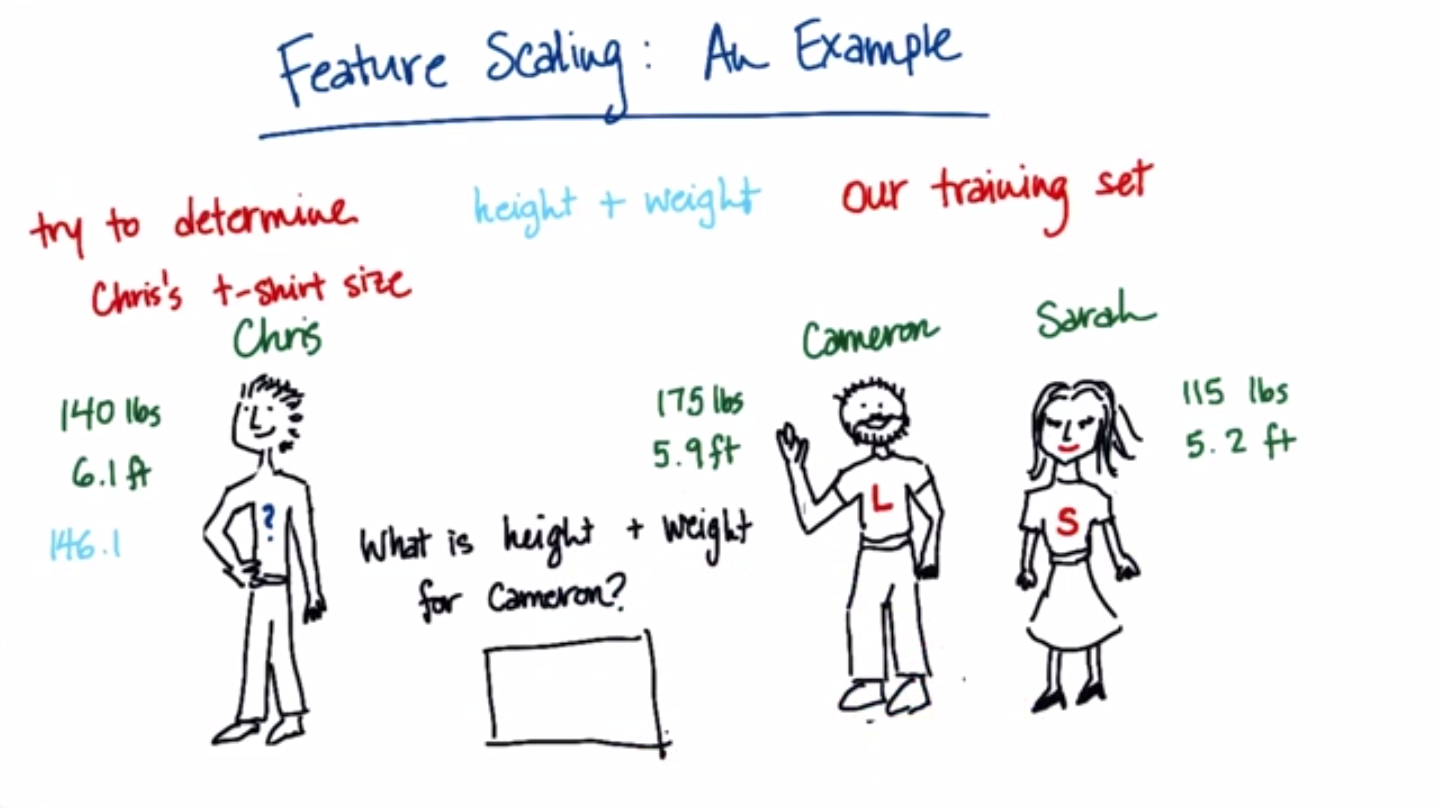 Feature Scaling: An Example
try to determine
Chris's t-shirt size
height + weight
our training set
Chris
140 lbs
6.1 ft
146.1
?
What is height + weight
for Cameron?
Cameron
175 lbs
5.9 ft
L
Sarah
115 lbs
5.2 ft
S